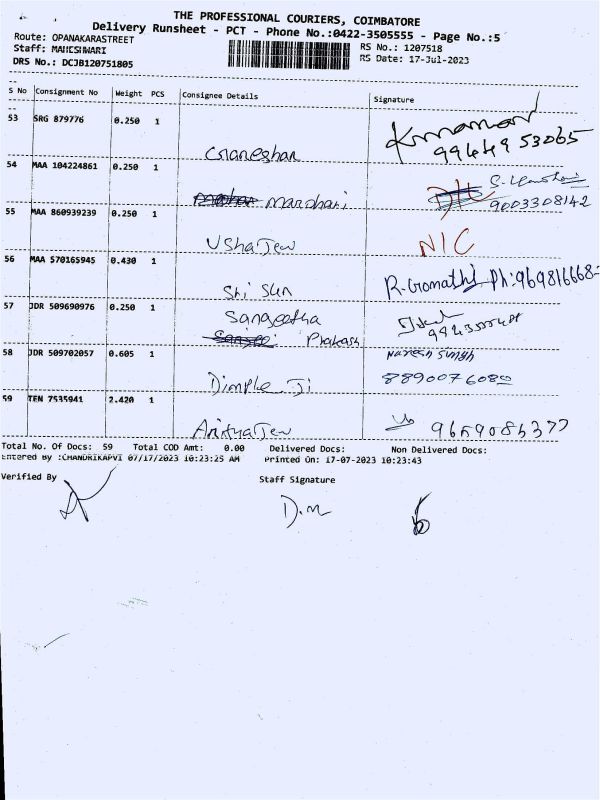 THE PROFESSIONAL COURIERS, COIMBATORE
Delivery Runsheet - PCT - Phone No.:0422-3505555 - Page No.:5
Route: OPANAKARASTREET
Staff: MAHESHWARI
DRS No.: DCJB120751805
RS No.: 1207518
RS Date: 17-Jul-2023
S No Consignment No Weight PCS Consignee Details Signature
53 SRG 879776 0.250 1
Gnaneshan
99449 53065
54 MAA 104224861 0.250 1
Manohari
9003308142
55 MAA 860939239 0.250 1
UshaJew
NIC
56 MAA 570165945 0.430 1
Sri Sun
R. Gomathi Ph:969816668
57 JDR 509690976 0.250 1
Sangeetha
Prakash
58 JDR 509702057 0.605 1
Naresh Singh
Dimple Ji
8890076080
59 TEN 7535941 2.420 1
Jew
9659085377
Total No. Of Docs: 59 Total COD Amt: 0.00 Delivered Docs: Non Delivered Docs:
Entered By :CHANDRIKAPVI 07/17/2023 10:23:25 AM Printed On: 17-07-2023 10:23:43
Verified By
Staff Signature
D.M